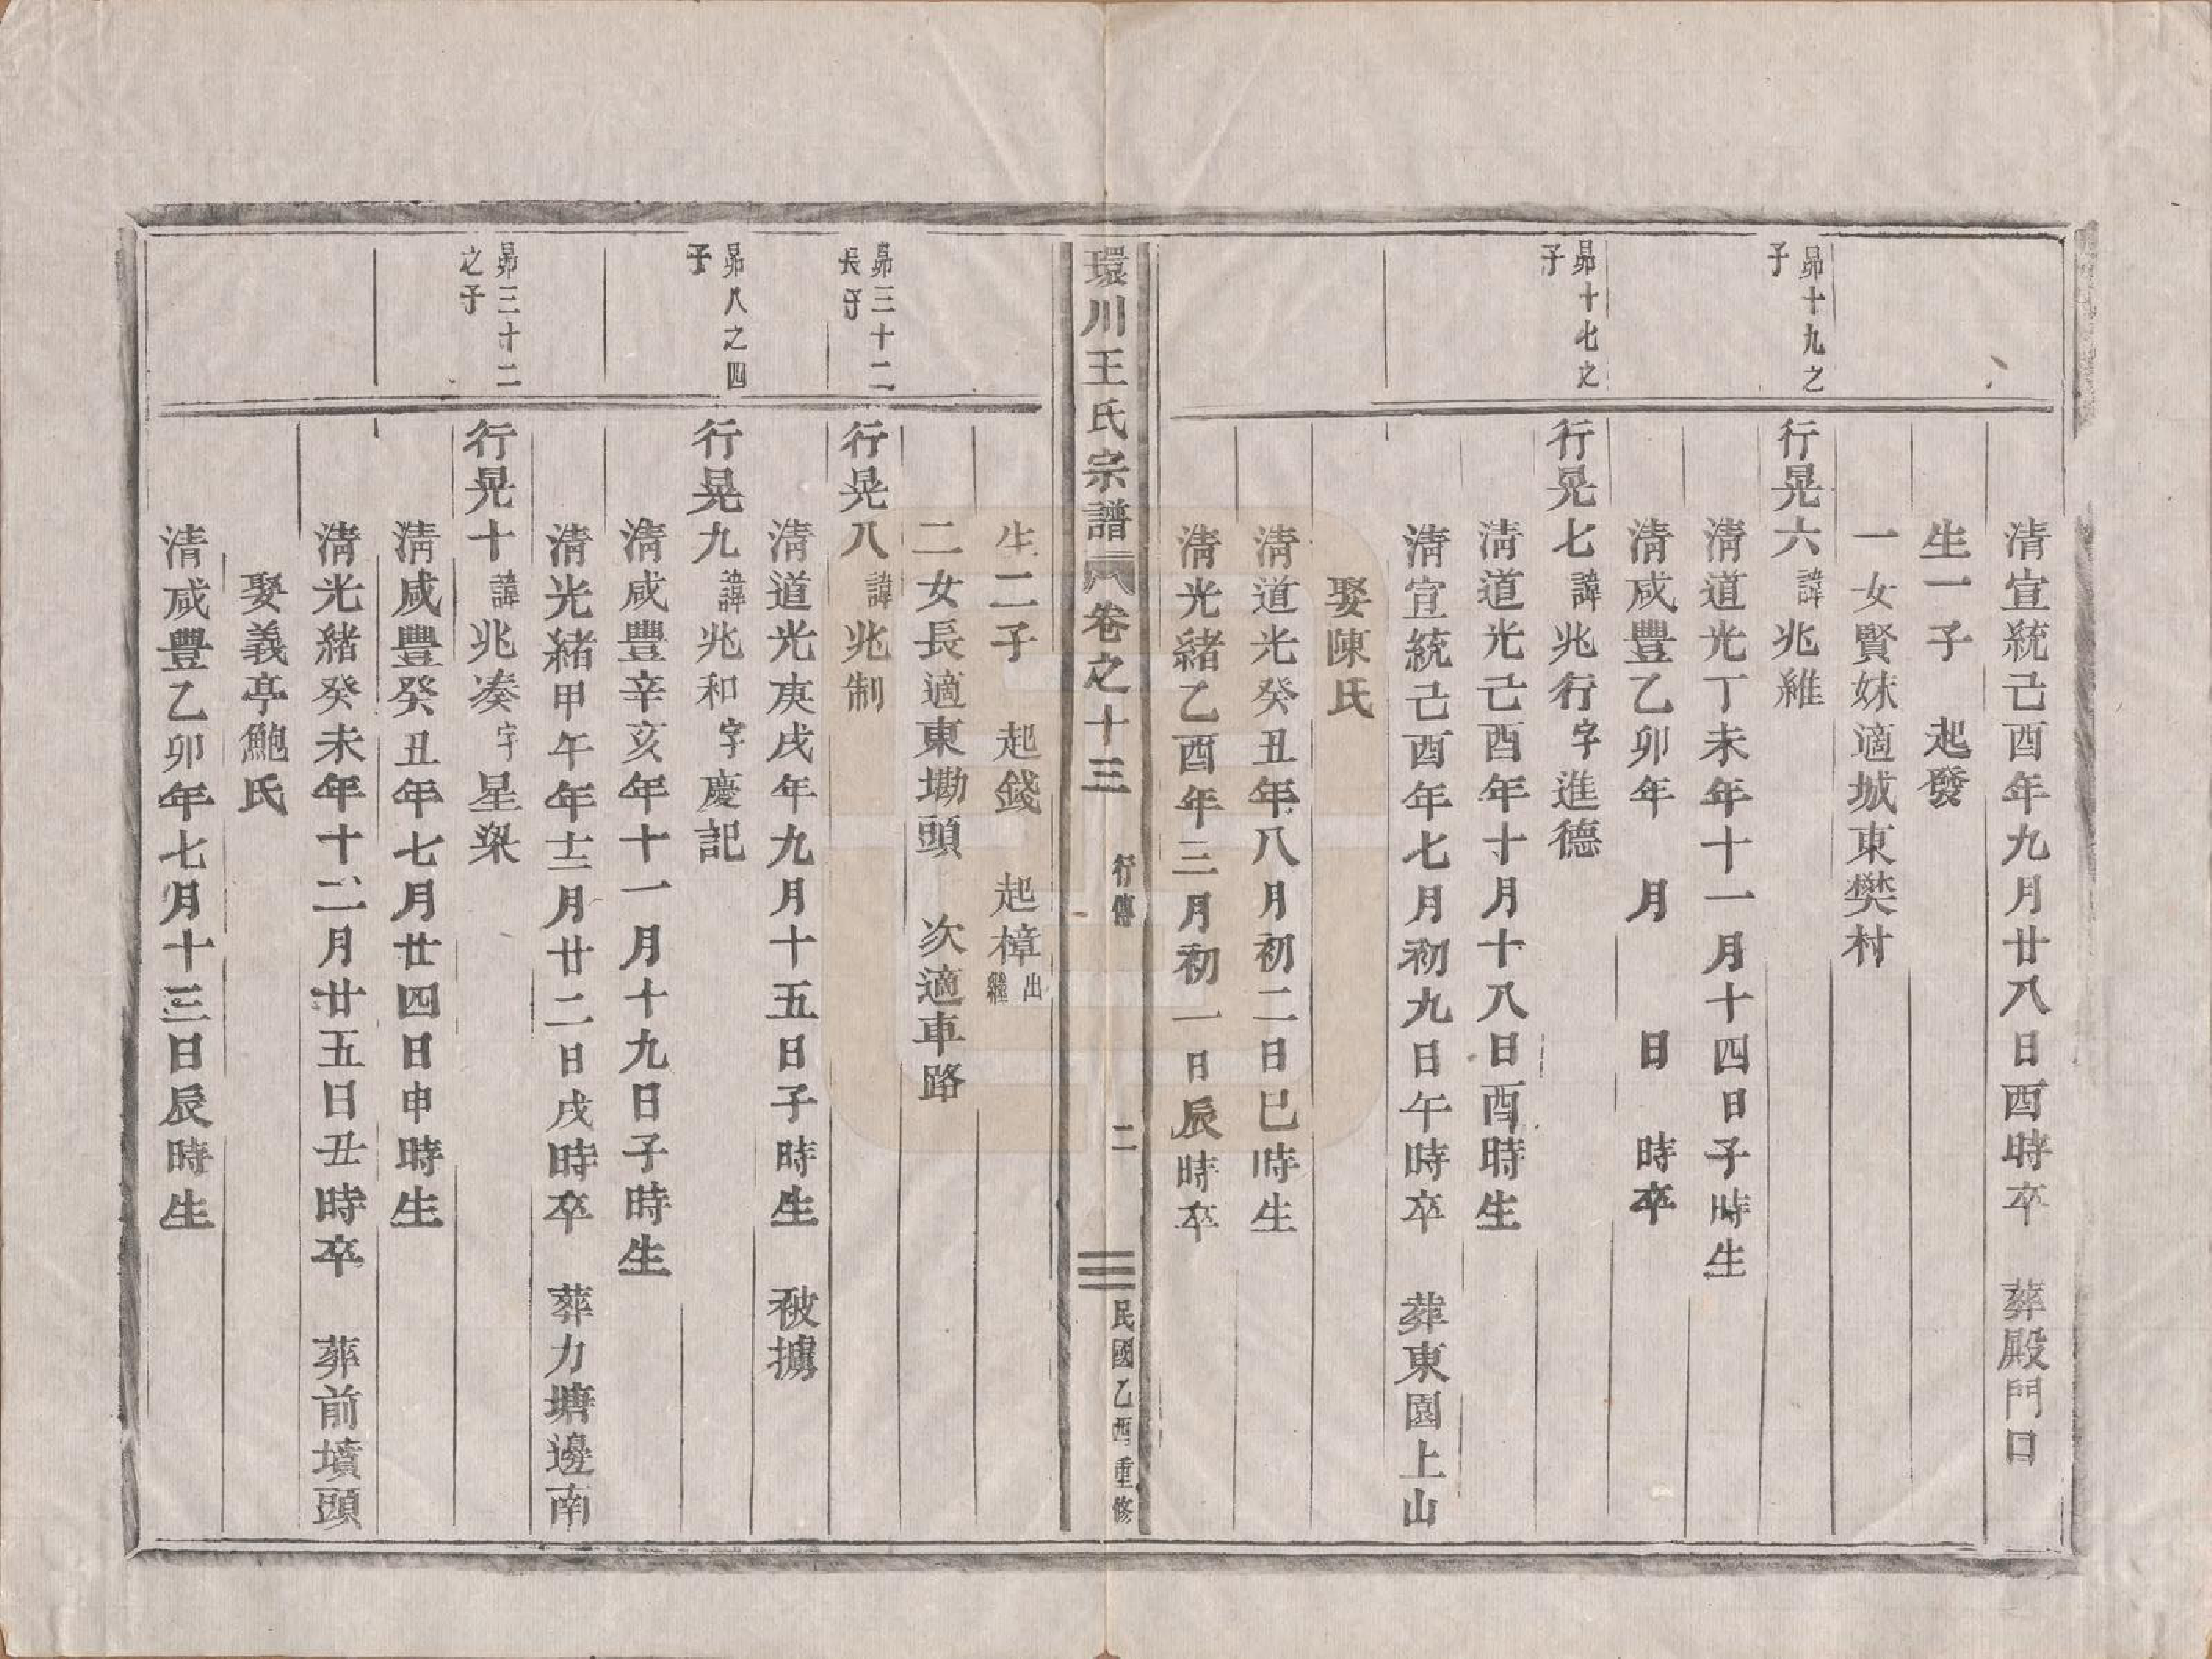 清宣統己酉年九月廿八日酉時卒　葬殿門口
生一子　起發
一女賢妹適城東樊村
昴十九之子
行晃六諱兆維
清道光丁未年十一月十四日子時生
清咸豐乙卯年　月　　日　時卒
昴十七之子
行晃七諱兆行字進德
清道光己酉年十月十八日酉時生
清宣統己酉年七月初九日午時卒　葬東園上山
娶陳氏
清道光癸丑年八月初二日巳時生
清光緒乙酉年三月初一日辰時卒
環川王氏宗譜　卷之十三　行傳　二　民國乙酉重修
生二子　起錢　起樟出繼
二女長適東塢頭　次適車路
昴三十二長子
行晃八諱兆制
清道光庚戌年九月十五日子時生　被擄
昴八之四子
行晃九諱兆和字慶記
清咸豐辛亥年十一月十九日子時生
清光緒甲午年十二月廿二日戌時卒　葬力塘邊南
昴三十二之子
行晃十諱兆凑字星梁
清咸豐癸丑年七月廿四日申時生
清光緒癸未年十二月廿五日丑時卒　葬前墳頭
娶義亭鮑氏
清咸豐乙卯年七月十三日辰時生